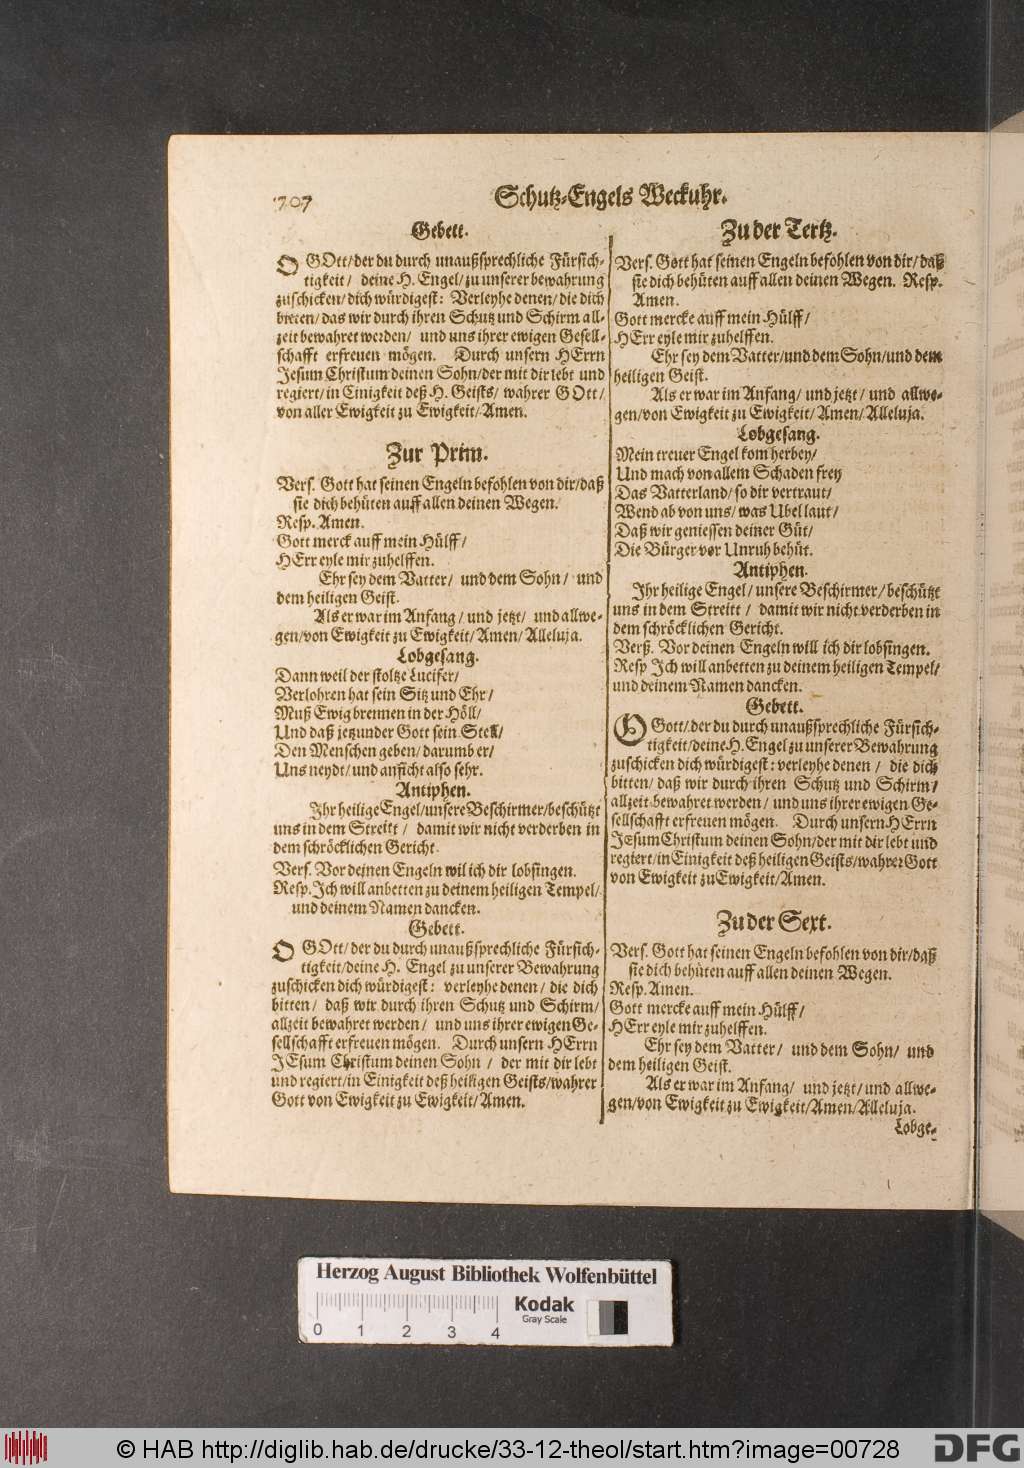 707
Schutz-Engels Weckuhr.
Gebett.
O GOtt/ der du durch unaußsprechliche Fürsich-
tigkeit/ deine H. Engel/ zu unserer bewahrung
zuschicken/ dich würdigest: Verleyhe denen/ die dich
bitten/ das wir durch ihren Schutz und Schirm all-
zeit bewahret werden/ und uns ihrer ewigen Gesell-
schafft erfreuen mögen. Durch unsern HErrn
Jesum Christum deinen Sohn/ der mit dir lebt und
regiert/ in Einigkeit deß H. Geists/ wahrer GOtt/
von aller Ewigkeit zu Ewigkeit/ Amen.
Zur Prim.
Vers. Gott hat seinen Engeln befohlen von dir/ daß
sie dich behüten auff allen deinen Wegen.
Resp. Amen.
Gott merck auff mein Hülff/
HErr eyle mir zuhelffen.
Ehr sey dem Vatter/ und dem Sohn/ und
dem heiligen Geist.
Als er war im Anfang/ und jetzt/ und allwe-
gen/ von Ewigkeit zu Ewigkeit/ Amen/ Alleluja.
Lobgesang.
Dann weil der stoltze Lucifer/
Verlohren hat sein Sitz und Ehr/
Muß Ewig brennen in der Höll/
Und daß jetzunder Gott sein Stell/
Den Menschen geben/ darumb er/
Uns neydt/ und anficht also sehr.
Antiphen.
Ihr heilige Engel/ unsere Beschirmer/ beschützt
uns in dem Streitt/ damit wir nicht verderben in
dem schröcklichen Gericht.
Vers. Vor deinen Engeln wil ich dir lobsingen.
Resp. Ich will anbetten zu deinem heiligen Tempel/
und deinem Namen dancken.
Gebett.
O GOtt/ der du durch unaußsprechliche Fürsich-
tigkeit/ deine H. Engel zu unserer Bewahrung
zuschicken dich würdigest: verleyhe denen/ die dich
bitten/ daß wir durch ihren Schutz und Schirm/
allzeit bewahret werden/ und uns ihrer ewigen Ge-
sellschafft erfreuen mögen. Durch unsern HErrn
JEsum Christum deinen Sohn/ der mit dir lebt
und regiert/ in Einigkeit deß heiligen Geists/ wahrer
Gott von Ewigkeit zu Ewigkeit/ Amen.
Zu der Tertz.
Vers. Gott hat seinen Engeln befohlen von dir/ daß
sie dich behüten auff allen deinen Wegen. Resp.
Amen.
Gott mercke auff mein Hülff/
HErr eyle mir zuhelffen.
Ehr sey dem Vatter/ und dem Sohn/ und dem
heiligen Geist.
Als er war im Anfang/ und jetzt/ und allwe-
gen/ von Ewigkeit zu Ewigkeit/ Amen/ Alleluja.
Lobgesang.
Mein treuer Engel kom herbey/
Und mach von allem Schaden frey
Das Vatterland/ so dir vertraut/
Wend ab von uns/ was Ubel laut/
Daß wir geniessen deiner Güt/
Die Bürger vor Unruh behüt.
Antiphen.
Ihr heilige Engel/ unsere Beschirmer/ beschützt
uns in dem Streitt/ damit wir nicht verderben in
dem schröcklichen Gericht.
Verß. Vor deinen Engeln will ich dir lobsingen.
Resp Ich will anbetten zu deinem heiligen Tempel/
und deinem Namen dancken.
Gebett.
O Gott/ der du durch unaußsprechliche Fürsich-
tigkeit/ deine H. Engel zu unserer Bewahrung
zuschicken dich würdigest: verleyhe denen/ die dich
bitten/ daß wir durch ihren Schutz und Schirm/
allzeit bewahret werden/ und uns ihrer ewigen Ge-
sellschafft erfreuen mögen. Durch unsern HErrn
JEsum Christum deinen Sohn/ der mit dir lebt und
regiert/ in Einigkeit deß heiligen Geists/ wahrer Gott
von Ewigkeit zu Ewigkeit/ Amen.
Zu der Sext.
Vers. Gott hat seinen Engeln befohlen von dir/ daß
sie dich behüten auff allen deinen Wegen.
Resp. Amen.
Gott mercke auff mein Hülff/
HErr eyle mir zuhelffen.
Ehr sey dem Vatter/ und dem Sohn/ und
dem heiligen Geist.
Als er war im Anfang/ und jetzt/ und allwe-
gen/ von Ewigkeit zu Ewigkeit/ Amen/ Alleluja.
Lobge-
Herzog August Bibliothek Wolfenbüttel
Kodak
Gray Scale
0 1 2 3 4
© HAB http://diglib.hab.de/drucke/33-12-theol/start.htm?image=00728
DFG